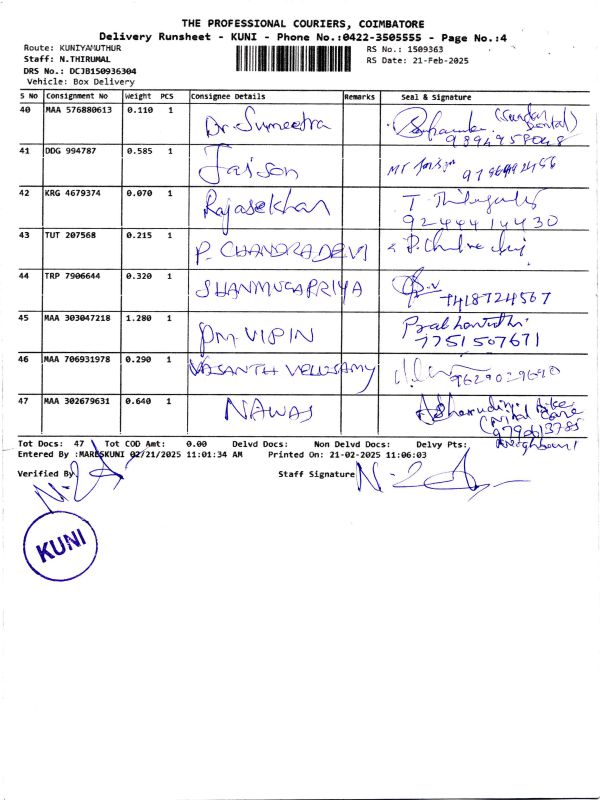 THE PROFESSIONAL COURIERS, COIMBATORE
Delivery Runsheet - KUNI - Phone No.:0422-3505555 - Page No.:4
Route: KUNIYAMUTHUR RS No.: 1509363
Staff: N.THIRUMAL RS Date: 21-Feb-2025
DRS No.: DCJB150936304
Vehicle: Box Delivery
S No Consignment No Weight PCS Consignee Details Remarks Seal & Signature
40 MAA 576880613 0.110 1 Dr. Sumeetra
41 DDG 994787 0.585 1 Jaison
42 KRG 4679374 0.070 1 Rajasekhar 9244414430
43 TUT 207568 0.215 1 P. CHANDRADEVI
44 TRP 7906644 0.320 1 SHANMUGAPRIYA 7418724567
45 MAA 303047218 1.280 1 PM. VIPIN 7751507671
46 MAA 706931978 0.290 1 VASANTH VELUSAMY
47 MAA 302679631 0.640 1 NAWAS
Tot Docs: 47 Tot COD Amt: 0.00 Delvd Docs: Non Delvd Docs: Delvy Pts:
Entered By :MARESKUNI 02/21/2025 11:01:34 AM Printed On: 21-02-2025 11:06:03
Verified By Staff Signature
KUNI